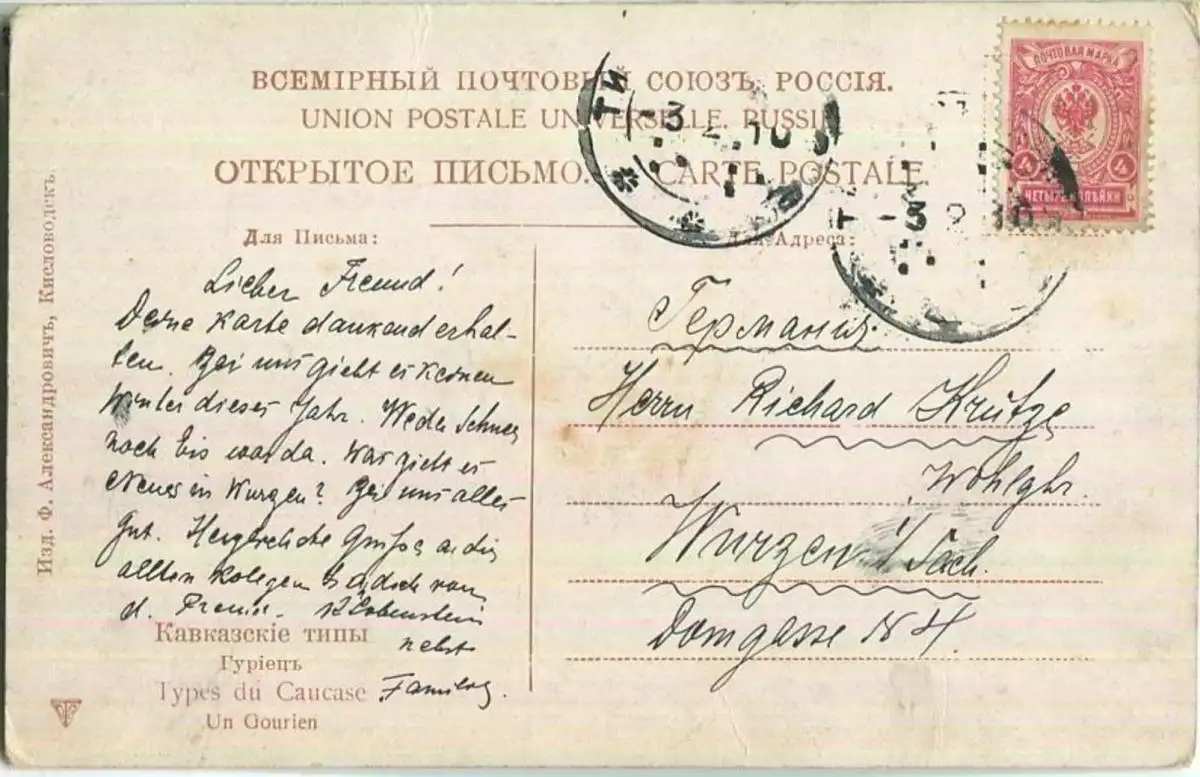 ВСЕМІРНЫЙ ПОЧТОВЫЙ СОЮЗЪ. РОССІЯ.
UNION POSTALE UNIVERSELLE. RUSSIE
ОТКРЫТОЕ ПИСЬМО. CARTE POSTALE.
ПОЧТОВАЯ МАРКА
4 4
ЧЕТЫРЕ КОПѢЙКИ
ТИ
-3 2 10
-3 2 10
Для Письма:
Для Адреса:
Lieber Freund!
Deine Karte dankend erhal-
ten. Bei uns giebt es keinen
Winter dieses Jahr. Weder Schnee
noch Eis war da. Was giebt es
Neues in Wurzen? Bei uns alles
gut. Herzliche Grüße an die
allten Kolegen & a dich von
d. Freund. Lobenstein
nebst
Familie.
Германия
Herrn Richard Krütze
Wohlgbr.
Wurzen i/Sach.
Domgasse N 4.
Кавказскіе типы
Гуріецъ
Types du Caucase
Un Gourien
Изд. Ф. Александровичъ, Кисловодскъ.